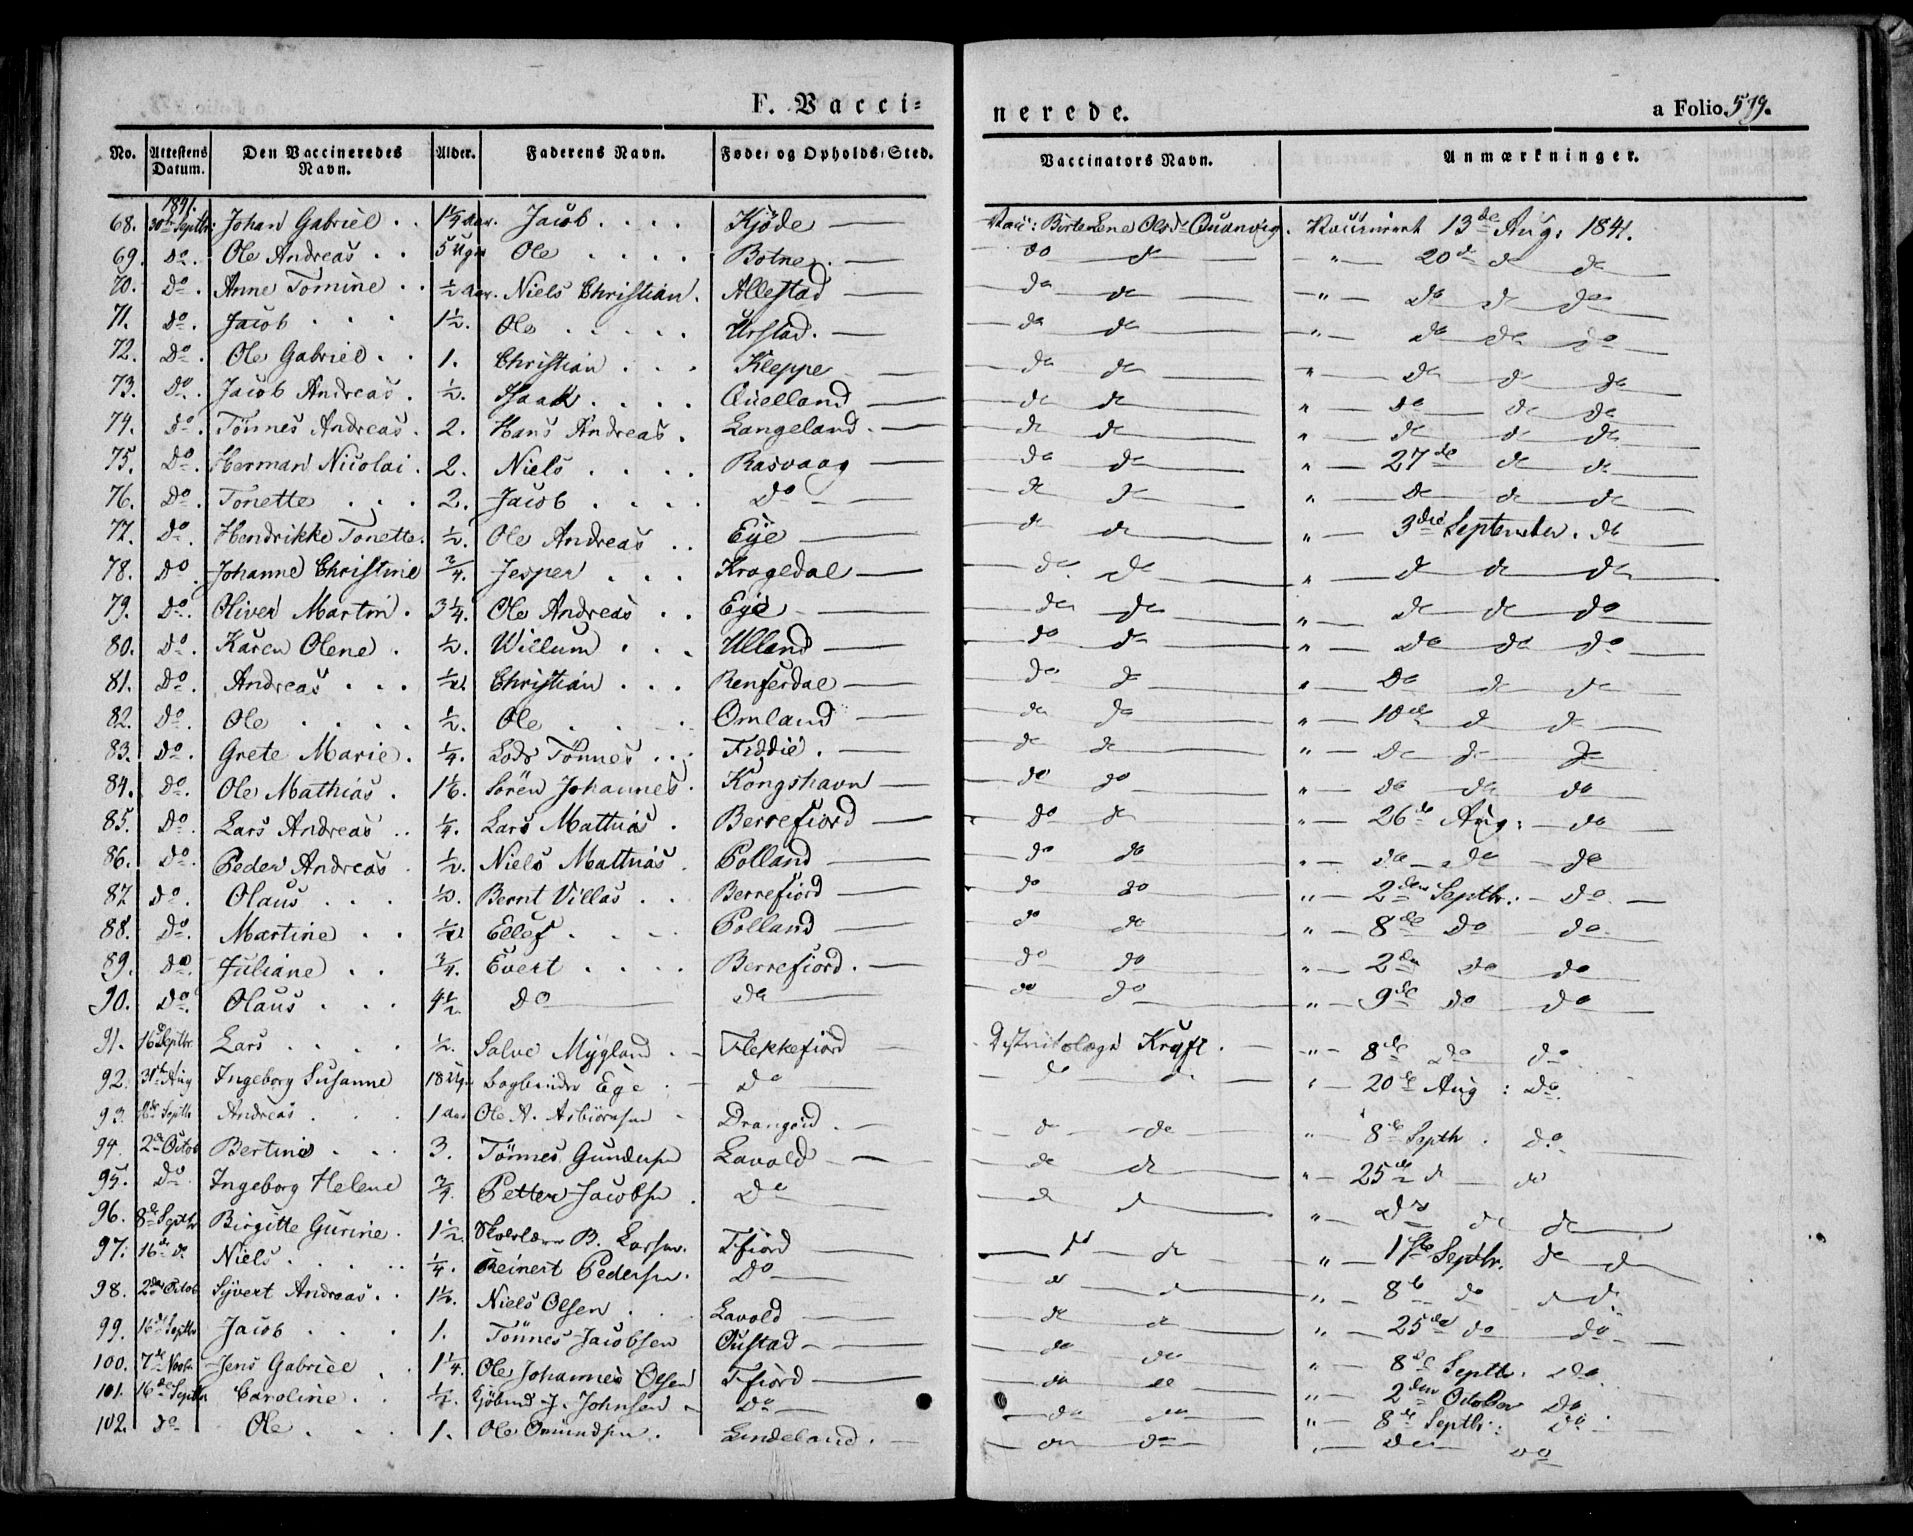 F. Vacci=
nerede.
a Folio. 579.
No. Attestens Datum. Den Vaccineredes Navn. Alder. Faderens Navn. Føde= og Opholds=Sted. Vaccinators Navn. Anmærkninger.
1841.
68. 30te Septbr: Johan Gabriel . . 1¼ aar. Jacob . . . . Kjöde — Vacc: Birte Lene Olsdr Quanvig. Vaccineret 13de Aug: 1841.
69. Do. Ole Andreas . . 5 Uger Ole . . . . Botne. — do do — " — 20de do do
70. Do. Anne Tomine . . ½ aar. Niels Christian. Allestad — do do — " — do do do
71. Do. Jacob . . . 1½. Ole . . . . . Urstad. — do do " — do do do
72. Do. Ole Gabriel . . 1. Christian . . . Kleppe — do do " — do do do
73. Do. Jacob Andreas . ½. Isaak . . . . Quelland — do do " — do — do do
74. Do. Tönnes Andreas . 2. Hans Andreas . Langeland. — do do " — do do do
75. Do. Herman Nicolai . 2. Niels . . . . Rasvaag — do do " — 27de do do
76. Do. Tonette . . . 2. Jacob . . . . Do — do do " — do do do
77. Do. Hendrikke Tonette. ½. Ole Andreas . . Eÿe — do do " — 3die September. do
78. Do. Johanne Christine ¾. Jesper . . . Kragedal — do do " — do do do
79. Do. Oliver Martin . 3¼. Ole Andreas . . Eye — do do " — do do do
80. Do. Karen Olene . ½. Willum . . . Ulland — do do " — do do do
81. Do. Andreas . . . ½. Christian . . . Renferdal — do do " — Do do do
82. Do. Ole . . . . ½. Ole . . . . Omland — do do " — 10de do do
83. Do. Grete Marie . ¼. Lods Tönnes . . Fiddie . — do do " — do do do
84. Do. Ole Mathias . 1⅙. Sören Johannes . Kongshavn — do do " — do do do
85. Do. Lars Andreas . . ¼. Lars Mathias . Berrefiord — do do " — 26de Aug: — do
86. Do. Peder Andreas . ½. Niels Mathias . Polland — do do " — do do do
87 Do. Olaus . . . ½. Bernt Villas . . Berrefiord — do do " — 2den Septbr: — do —
88. Do. Martine . . ½ Ellef . . . . Polland — do do " — 8de do do
89. Do. Juliane . . ¾. Evert . . . . Berrefiord. — do do " — 2den do do
90. Do. Olaus . . . 4½ Do — do — do do " — 9de do do
91. 16de Septbr Lars . . . . ½. Salve Mÿgland . — Flekkefiord — Districtslæge Kraft. — " — 8de do do
92. 31te Aug Ingeborg Susanne 18 Uger Bogbinder Ege . — Do — do do " — 20de Aug : do
93. Septbr Andreas . . . 1 aar Ole A. Asbiörnsen — Drangeid . — do do " — 8de Septbr . do
94. 2de Octob Bertine . . . 3. Tönnes Gundersen Lavold — do do " — 25de do do
95. Do Ingeborg Helene ¾. Petter Jacobsen . Do — do do " — do do do
96. 8de Septbr Birgitte Gurine . 1½. Skolelærer B. Larsen. Ffiord — do do " — 1ste Septbr. do do
97. 16de do Niels . . . . . ¼. Reinert Pedersen . Do — do do " — 8de do do do
98. 2den Octob Syvert Andreas . . 1½. Niels Olsen . . . Lavold — do do " — 25de do do —
99. 16de Septbr Jacob . . . 1. Tönnes Jacobsen Oustad — do do " — 8de Septbr. do
100. 7de Novbr Jens Gabriel . 1¼. Ole Johannes Olsen Ffiord — do do " — 2den October do
101. 16de Septbr Caroline . . ½. Kjöbmd J. Johnsen — Do — do do " — 8de Septbr: do
102. Do Ole . . . 1. Ole Omundsen . Lindeland . — do do " — do do